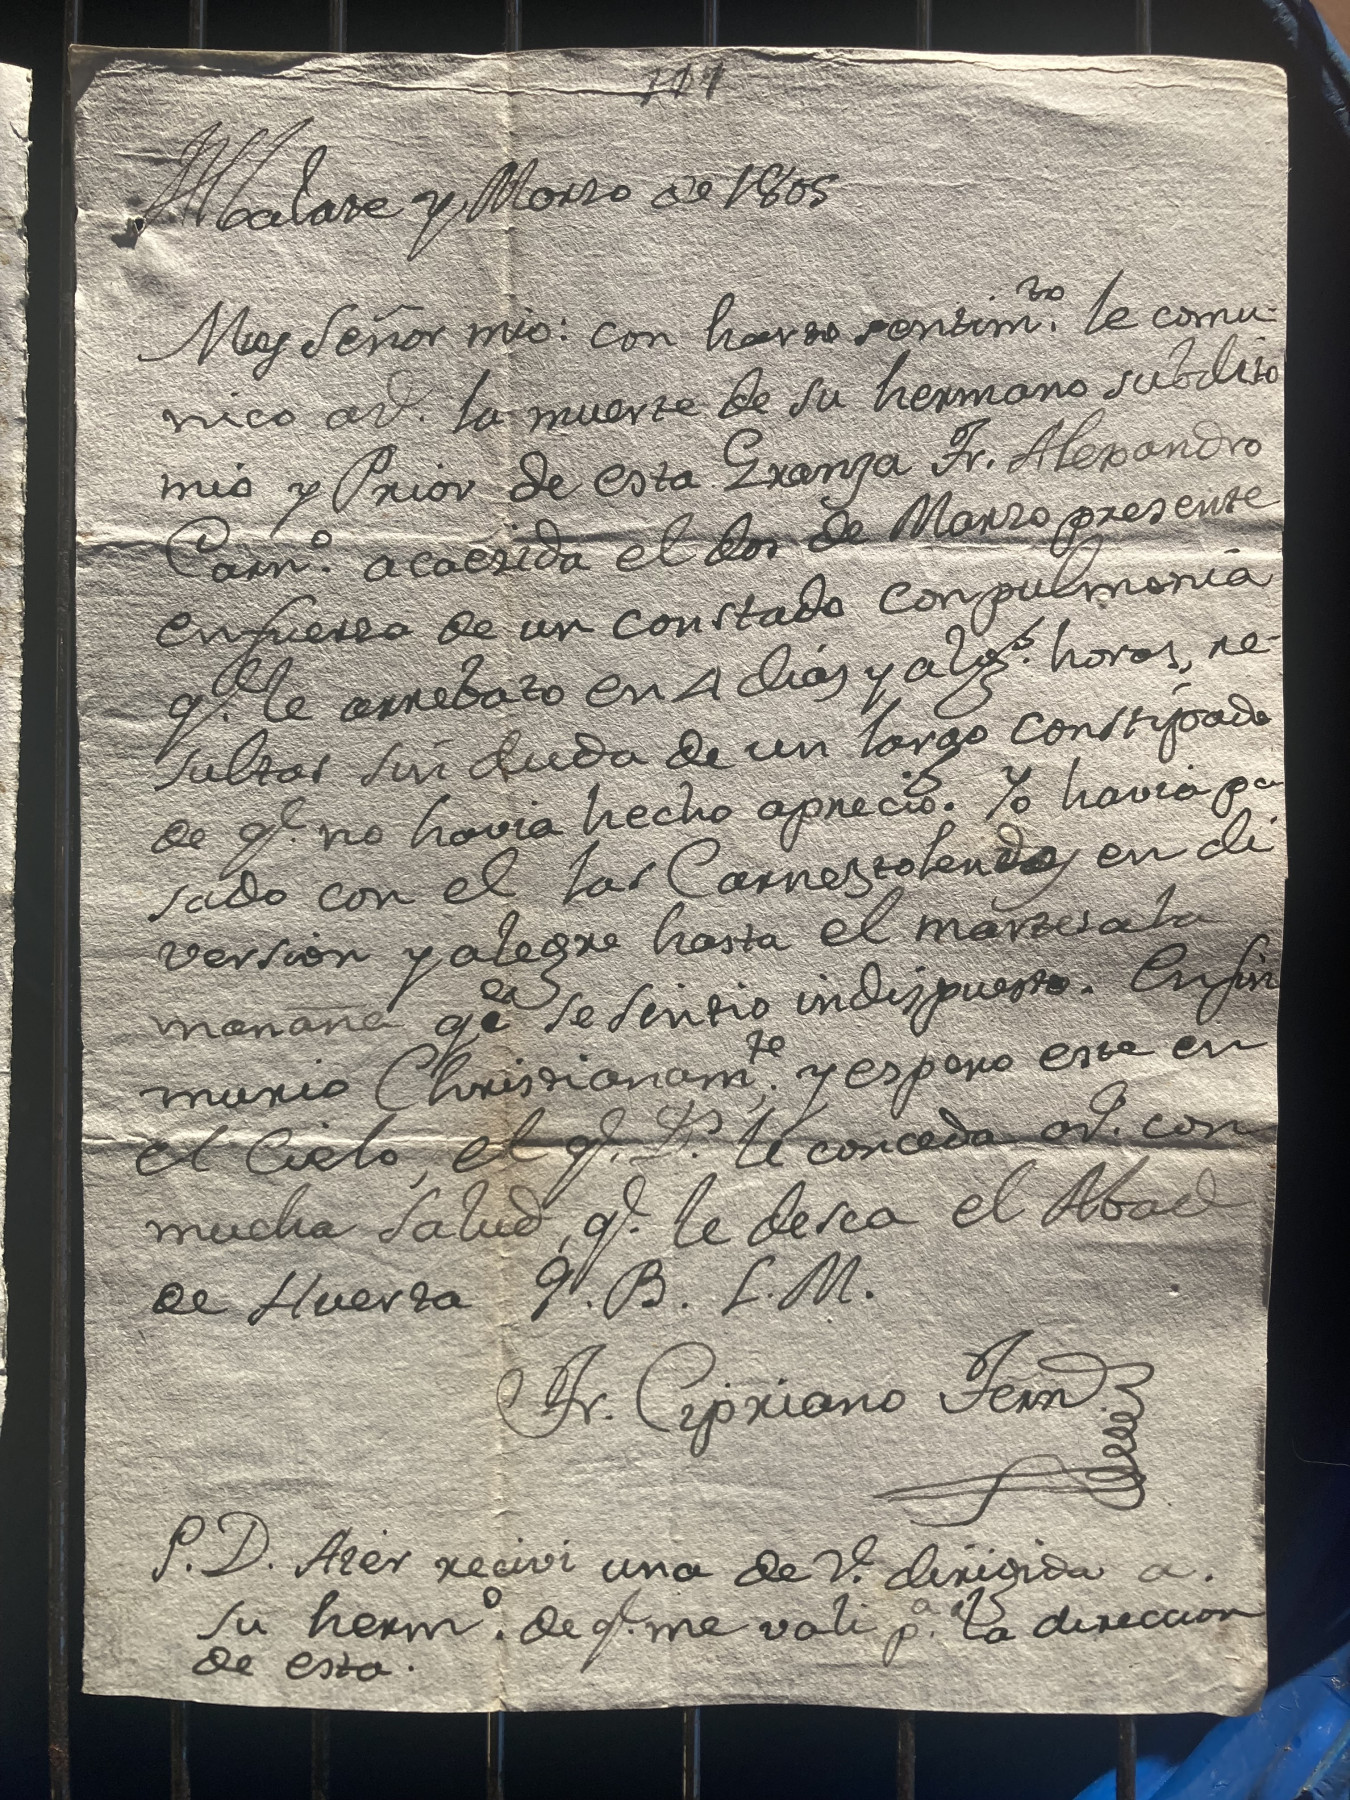 Albalate y Marzo de 1805
Muy Señor mio: con harto sentim.to le comu-
nico a V. la muerte de su hermano subdito
mio y Prior de esta Granja Fr. Alexandro
Carn.o acaecida el dos de Marzo presente
en fuerza de un constado con pulmonia
q.e le arrebato en 4 dias y alg.s horas, re-
sultas sin duda de un largo constipado
de q.e no havia hecho aprecio. Yo havia pa
sado con el las Carnestolendas en di
version y alegre hasta el martes a la
manana q.e se sintio indispuesto. En fin
murio Christianam.te y espero este en
el Cielo, el q.e D.s le conceda a V. con
mucha salud, q.e le desea el Abad
de Huerta Q. B. S. M.
Fr. Cipriano Fern.
P. D. Ayer recivi una de V. dirigida a.
su herm.o de q.e me vali p.a la direccion
de esta.